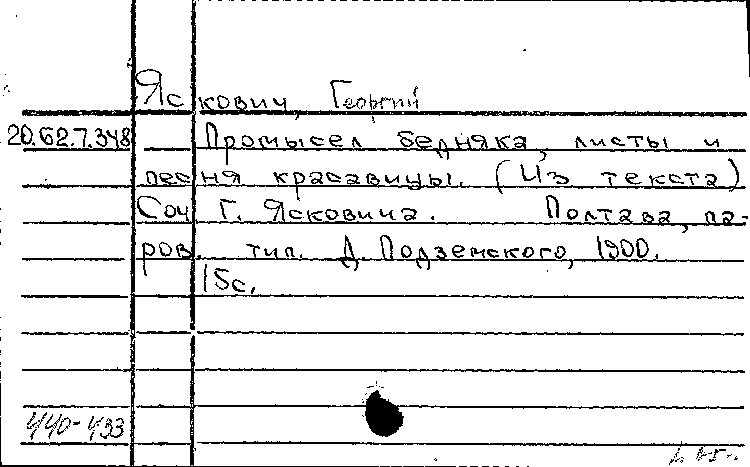 Яскович, Георгий
20.62.7.348 Промысел бедняка, листы и
песня красавицы. (Из текста)
Соч. Г. Ясковича. Полтава, па-
ров. тип. Д. Подземского, 1900.
15с.
440-433